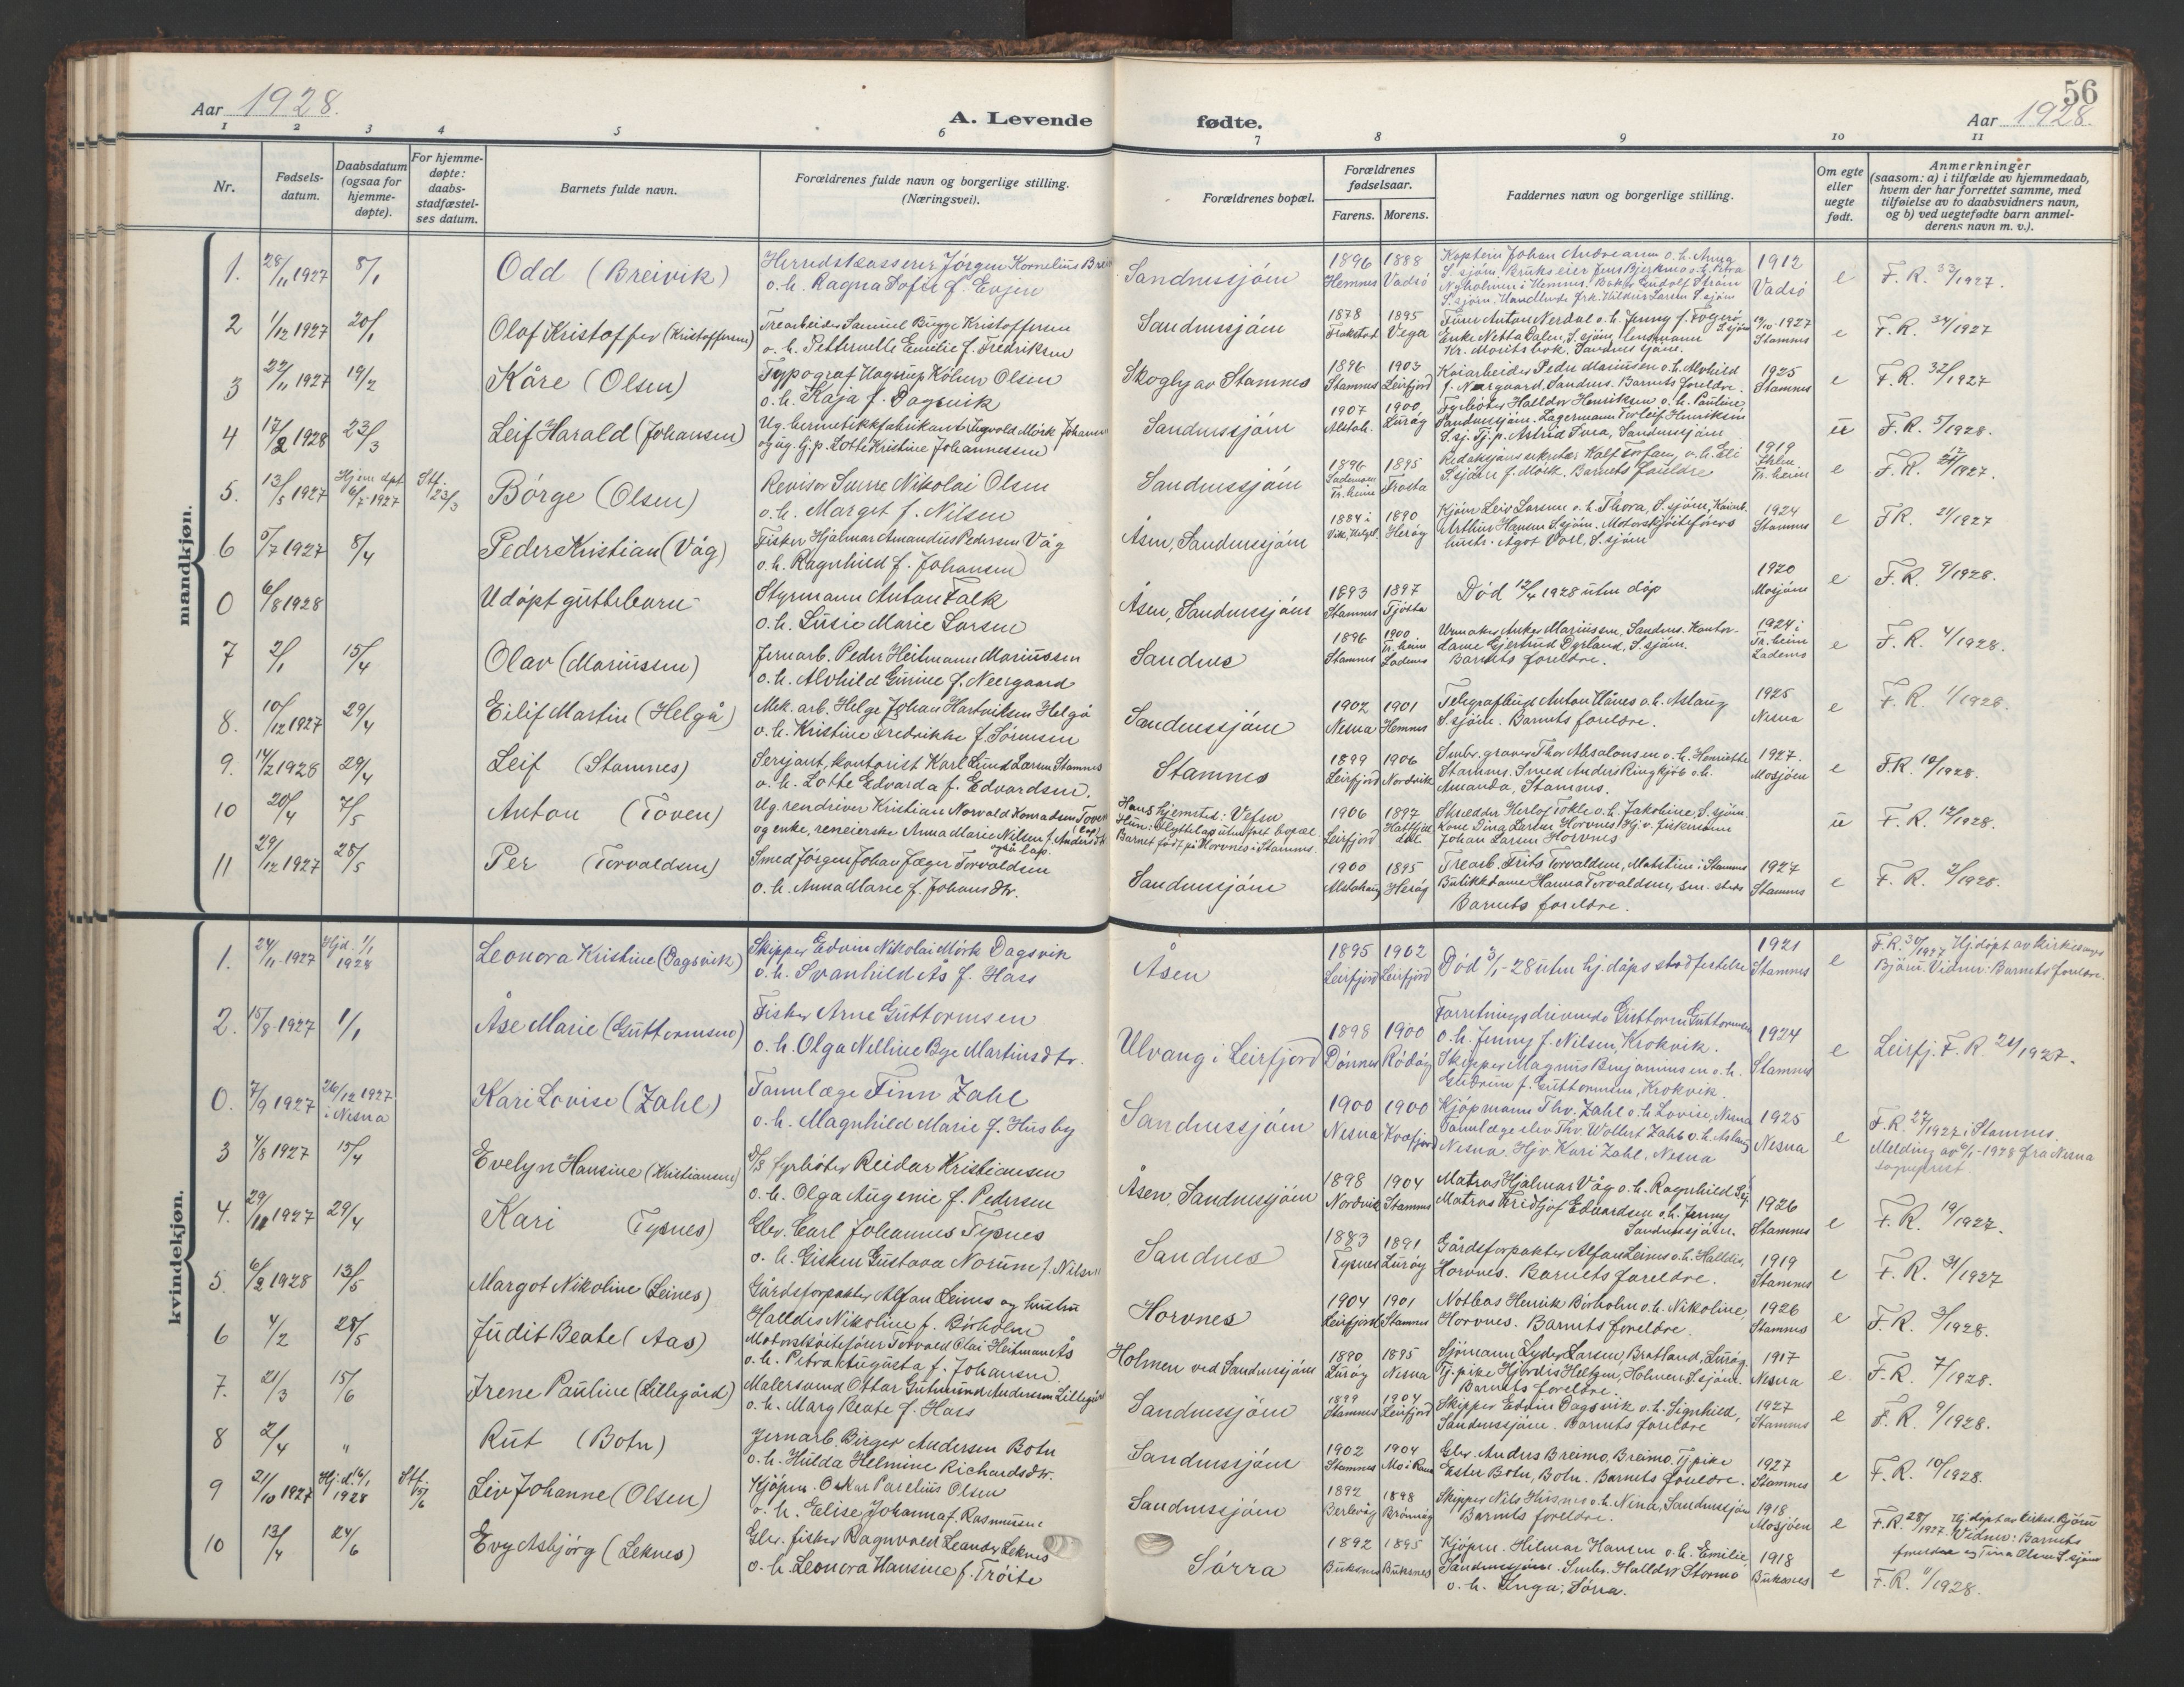 56
Aar 1928.
A. Levende fødte.
Aar 1928.
1 2 3 4 5 6 7 8 9 10 11
Nr.
Fødsels-
datum.
Daabsdatum
(ogsaa for
hjemme-
døpte).
For hjemme-
døpte:
daabs-
stadfæstel-
ses datum.
Barnets fulde navn.
Forældrenes fulde navn og borgerlige stilling.
(Næringsvei).
Forældrenes bopæl.
Forældrenes
fødselsaar.
Farens. Morens.
Faddernes navn og borgerlige stilling.
Om egte
eller
uegte
født.
Anmerkninger
(saasom: a) i tilfælde av hjemmedaab,
hvem der har forrettet samme, med
tilføielse av to daabsvidners navn,
og b) ved uegtefødte barn anmel-
derens navn m. v.).
mandkjøn.
1. 28/11 1927 8/1 Odd (Breivik)
Herredskasserer Jörgen Kornelius
o. h. Ragna Sofie f. Evjen
Sandnessjöen
1896 Hemnes 1888 Vadsö
1912 Vadsö e F. R. 33/1927.
2 1/12 1927 20/1 Olaf Kristoffer (Kristoffersen)
Trearbeider Samuel Bugge Kristoffersen
o. h. Petternelle Emilie f. Fredriksen
Sandnessjöen
1878 1895 Vega
Enke Netta Dalen, S. sjöen, lensmann
Stamnes e F. R. 34/1927
3 22/11 1927 19/2 Kåre (Olsen)
Typograf Hagerup Köhen Olsen
o. h. Kaja f. Dagsvik
Skogly av Stamnes
1896 Stamnes 1903 Leirfjord
Kaiarbeider Peder Mariussen o. h. Alvhild
f. Neergaard, Sandnes. Barnets foreldre.
1925 Stamnes e F. R. 32/1927
4 17/2 1928 23/3 Leif Harald (Johansen)
Ug. hermetikkfabrikant Ingvold Mörk
og ug. tj.p. Lotte Kristine Johannessen
Sandnessjöen
1907 Alstah. 1900 Luröy
Fyrböter Halldor Henriksen o. h. Pauline
Sandnessjöen. Lagermann Torleif Henriksen
S. sj. Tj. p. Astrid Svea, Sandnessjöen
ü F. R. 5/1928.
5. 13/5 1927 Hjem. dpt 6/7 1927 Stf. 23/3 Börge (Olsen)
Revisor Sverre Nikolai Olsen
o. h. Margot f. Nilsen
Sandnessjöen
1896 1895 Frosta
S. sjöen f. Mörk. Barnets foreldre
1919 Tr.heim e F. R. 1927.
6 5/7 1927 8/4 Peder Kristian (Våg)
Fisker Hjalmar Amandus Pedersen Våg
o. h. Ragnhild f. Johansen
Åsen, Sandnessjöen
1884 i 1890 Heröy
Kjöpm Leiv Larsen o. h. Thora, S. sjöen, Kaiarb.
Arthur Hansen S. sjöen. Motorskjöiteförers
hustr. Ågot Voll, S. sjöen
1924 Stamnes e FR. 21/1927
0 6/8 1928 Udöpt guttebarn
Styrmann Anton Falk
o. h. Lusie Marie Larsen
Åsen, Sandnessjöen
1893 Stamnes 1897 Tjötta
Död 12/4 1928 uten dåp
1920 Mosjöen e F. R. 9/1928.
7 2/1 15/4 Olav (Mariussen)
Jernarb. Peder Heitmann Mariussen
o. h. Alvhild Gurine f. Neergaard
Sandnes
1896 Stamnes 1900 Tr.heim Lademo
Urmaker Anker Mariussen, Sandnes. Kontor-
dame Gjertrud Dyrland, S. sjöen.
Barnets foreldre.
1924 i Tr.heim Lademo e F. R. 4/1928.
8. 10/12 1927 29/4 Eilif Martin (Helgå)
Mek. arb. Helge Johan Hartviksen Helgå
o. h. Kristine Fredrikke f. Sörensen
Sandnessjöen
1902 Nesna 1901 Hemnes
Telegrafbud Anton Hånes o. h. Aslaug
S. sjöen. Barnets foreldre.
1925 Nesna e F. R. 1/1928.
9. 14/2 1928 29/4 Leif (Stamnes)
Serjant, kontorist Karl Lund Larsen Stamnes
o. h. Lotte Edvarda f. Edvardsen.
Stamnes
1899 Leirfjord 1906 Nordvik
Småbr. graver Thor Absalonsen o. h. Henriette
Stamnes. Smed Anders Ringkjöb o. h.
Amanda, Stamnes.
1927. Mosjöen e F.R. 10/1928.
10 20/4 7/5 Anton (Toven)
Ug. rendriver Kristian Norvald Konradsen Toven (lap)
og enke, reneierske Anna Marie Nilsen f. Andersdtr
også lap.
Hans hjemsted: Vefsn
Hun: Flyttelap uten fast bopæl.
Barnet födt på Horvnes i Stamnes.
1906 Leirfjord 1897 Hattfjeldal
Skredder Herlof Tokle o. h. Jakobine, S. sjöen
Kone Dina Larsen Horvnes. Hj. v. fiskermann
Johan Larsen Horvnes
ü F. R. 12/1928.
11 29/12 1927 28/5 Per (Torvaldsen)
Smed Jörgen Johan Jæger Torvaldsen
o. h. Anna Marie f. Johansdtr.
Sandnessjöen
1900 Alstahaug 1895 Heröy
Trearb. Frits Torvaldsen, Stamnes
Butikkdame Hanna Torvaldsen, sm. steds
Barnets foreldre.
1927 Stamnes e F. R. 2/1928.
kvindekjøn.
1. 24/11 1927 Hjd. 1/1 1928 Leonora Kristine (Dagsvik)
Skipper Edvin Nikolai Mörk Dagsvik
o. h. Svanhild Ås f. Hass
Åsen
1895 Leirfjord 1902 Leirfjord
Död 3/1-28 uten hj.dåps stadfestelse
1921 Stamnes e F. R. 30/1927 Hj.döpt av kirkesanger
Björu. Vidner: Barnets foreldre.
2. 15/8 1927 1/1 Åse Marie (Guttormsen)
Fisker Arne Guttormsen
o. h. Olga Nelline Bye Martinsdtr.
Ulvang i Leirfjord
1898 Dönnes 1900 Rödöy
Forretningsdrivende Guttorm Guttormsen
o. h. Jenny f. Nilsen, Krokvik.
Skipper Magnus Benjaminsen o. h.
Gudrun f. Guttormsen, Krokvik.
1924 Stamnes e Leirfj. F. R. 24/1927.
0. 7/9 1927 26/12 1927 i Nesna Kari Lovise (Zahl)
Tannlæge Finn Zahl
o. h. Magnhild Marie f. Husby
Sandnessjöen
1900 Nesna 1900 Kvæfjord
Kjöpmann Thv. Zahl o. h. Lovise, Nesna
Tannlæge elev Thv. Wollert Zahl o. h. Aslaug
Nesna. Hjv. Kari Zahl, Nesna
1925 Nesna e F. R. 27/1927 i Stamnes.
Melding av 6/1-1928 fra Nesna
sogneprest.
3 4/8 1927 15/4 Evelyn Hansine (Kristiansen)
D/S fyrböter Reidar Kristiansen
o. h. Olga Augenie f. Pedersen
Åsen, Sandnessjöen
1898 Nordvik 1904 Stamnes
Matros Hjalmar Våg o. h. Ragnhild
Matros Fridtjof Edvardsen o. h. Jenny
Sandnessjöen.
1926 Stamnes e F. R. 19/1927.
4. 29/10 1927 29/4 Kari (Tysnes)
Gbr. Carl Johannes Tysnes
o. h. Gisken Gustava Norum f. Nilsen
Sandnes
1883 Tysnes 1891 Luröy
Gårdsforpakter Alfan Leines o. h. Halldis,
Horvnes. Barnets foreldre.
1919 Stamnes e F. R. 31/1927
5. 6/2 1928 13/5 Margot Nikoline (Leines)
Gårdsforpakter Alfan Leines og hustru
Halldis Nikoline f. Börholm
Horvnes
1904 Leirfjord 1901 Stamnes
Notbas Henrik Börholm o. h. Nikoline,
Horvnes. Barnets foreldre.
1926 Stamnes e F. R. 3/1928.
6 4/2 28/5 Judit Beate (Aas)
Motorsköitefører Torvald Olai Heitmann Ås
o. h. Petra Augusta f. Johansen.
Holmen ved Sandnessjöen
1890 Luröy 1895 Nesna
Sjömann Lyder Larsen, Bratland, Luröy.
Tj. pike Hjördis Heltzen, Holmen S. sjöen.
Barnets foreldre.
1917 Nesna e F. R. 7/1928.
7. 21/3 15/6 Irene Pauline (Lillegård)
Malersvend Ottar Gutmund Andersen Lillegård
o. h. Mary Beate f. Hass
Sandnessjöen
1899 Stamnes 1904 Leirfjord
Skipper Edvin Dagsvik o. h. Signhild,
Sandnessjöen. Barnets foreldre
1927 Stamnes e F. R. 9/1928.
8 2/4 " Rut (Botn)
Jernarb. Birger Andersen Botn
o. h. Hulda Helmine Richardsdtr.
Sandnessjöen
1902 Stamnes 1904 Mo i Rana
Gbr. Anders Breimo, Breimo, Tj pike
Ester Botn, Botn. Barnets foreldre.
1927 Stamnes e F. R. 10/1928.
9 21/10 1927 Hj.d. 16/1 1928 Stf. 15/6 Liv Johanne (Olsen)
Kjöpm. Oskar Parelius Olsen
o. h. Elise Johanna f. Rasmussen
Sandnessjöen
1892 Berlevåg 1898 Brönnöy
Skipper Nils Husnes o. h. Nina, Sandnessjöen
Barnets foreldre.
1918 Mosjöen e F. R. 28/1927. Hj.döpt av kirkes. Björu
Vidner: Barnets
foreldre og Tina Olsen S. sjöen
10 13/4 24/6 Evy Asbjörg (Leknes)
Gbr. fisker Ragnvald Leander Leknes
o. h. Leonora Hansine f. Tröite
Sörra
1892 Buksnes 1895 Buksnes
Kjöpm. Hilmar Hansen o. h. Emilie,
Sandnessjöen. Småbr. Halldor Stormo
o. h. Inga, Sörra.
1918 Buksnes e F. R. 11/1928.